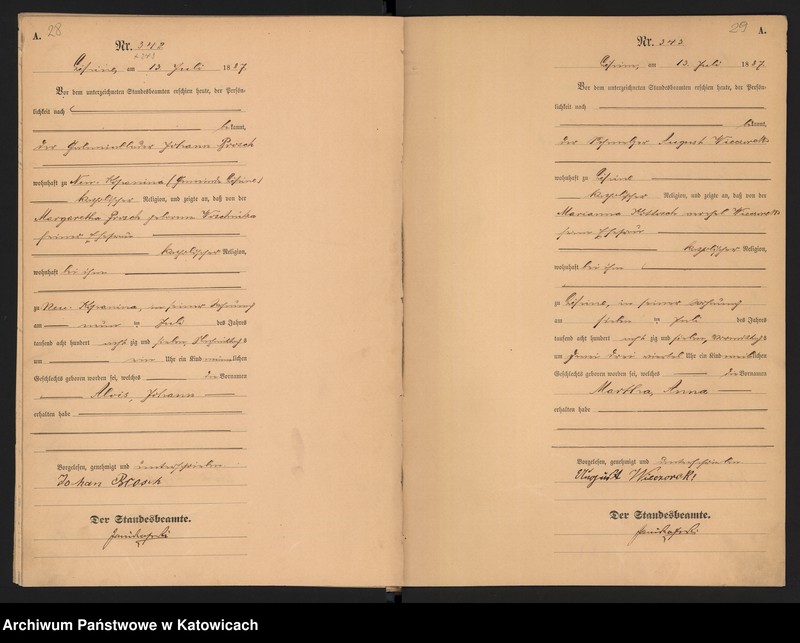 A. 28
Nr. 342
am 13 Juli 1887.
Vor dem unterzeichneten Standesbeamten erschien heute, der Persön-
lichkeit nach
bekannt,
der Johann Brosch
wohnhaft zu Neu (Gemeinde
katholischer Religion, und zeigte an, daß von der
Margaretha geborene
seiner Ehefrau
katholischer Religion,
wohnhaft bei ihm
zu Neu in seiner Wohnung
am neun ten Juli des Jahres
tausend acht hundert acht zig und sieben, Nachmittags
um vier Uhr ein Kind männlichen
Geschlechts geboren worden sei, welches die Vornamen
Alois, Johann
erhalten habe
Vorgelesen, genehmigt und unterschrieben
Johan Brosch
Der Standesbeamte.
29 A.
Nr. 343
am 13 Juli 1887.
Vor dem unterzeichneten Standesbeamten erschien heute, der Persön-
lichkeit nach
bekannt,
der August
wohnhaft zu
katholischer Religion, und zeigte an, daß von der
Marianna
seiner Ehefrau
katholischer Religion,
wohnhaft bei ihm
zu in seiner Wohnung
am sieben ten Juli des Jahres
tausend acht hundert acht zig und sieben, Vormittags
um zwei drei viertel Uhr ein Kind weiblichen
Geschlechts geboren worden sei, welches die Vornamen
Martha, Anna
erhalten habe
Vorgelesen, genehmigt und unterschrieben
August Wieczorek
Der Standesbeamte.
Archiwum Państwowe w Katowicach